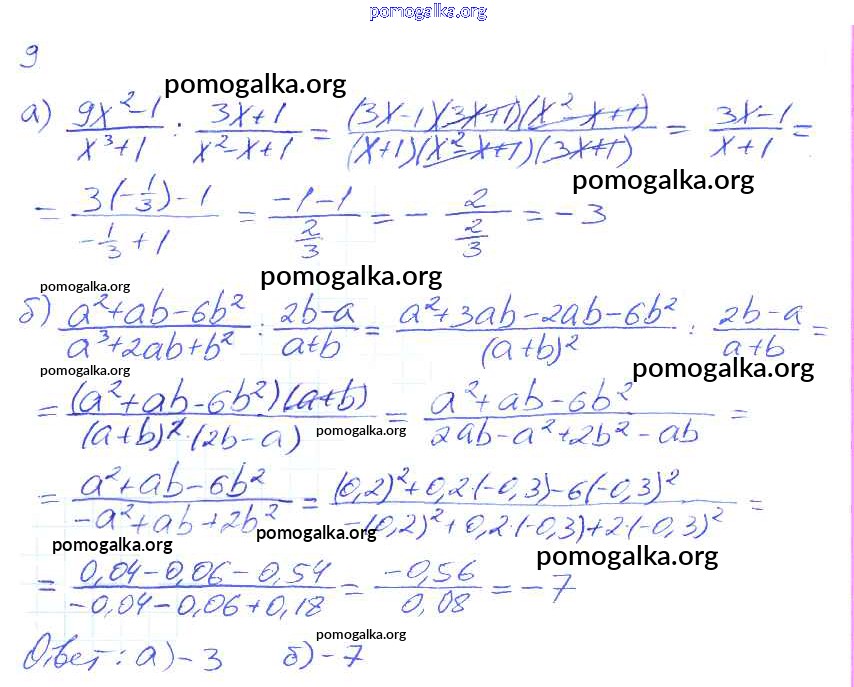 pomogalka.org
9
pomogalka.org
а) (9x²-1)/(x³+1) : (3x+1)/(x²-x+1) = ((3x-1)(3x+1)(x²-x+1))/((x+1)(x²-x+1)(3x+1)) = (3x-1)/(x+1) =
pomogalka.org
= (3(-1/3)-1)/(-1/3+1) = (-1-1)/(2/3) = - 2/(2/3) = -3
pomogalka.org pomogalka.org
б) (a²+ab-6b²)/(a³+2ab+b²) : (2b-a)/(a+b) = (a²+3ab-2ab-6b²)/(a+b)² : (2b-a)/(a+b) =
pomogalka.org pomogalka.org
= ((a²+ab-6b²)(a+b))/((a+b)²·(2b-a)) = (a²+ab-6b²)/(2ab-a²+2b²-ab) =
pomogalka.org
= (a²+ab-6b²)/(-a²+ab+2b²) = ((0,2)²+0,2·(-0,3)-6(-0,3)²)/(-(0,2)²+0,2·(-0,3)+2·(-0,3)²) =
pomogalka.org pomogalka.org pomogalka.org
= (0,04-0,06-0,54)/(-0,04-0,06+0,18) = (-0,56)/(0,08) = -7
pomogalka.org
Ответ: а) -3 б) -7